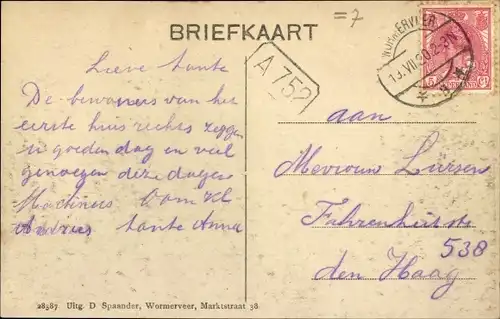 =7
BRIEFKAART
WORMERVEER
13.VII.20.2-3N
A 752
Lieve tante
De bewoners van het
eerste huis rechts zeggen
u goeden dag en veel
genoegen deze dagen
Martinus Oom Kl
Andries tante Anna
aan
Mevrouw Luirsen
Fahrenheitstr
538
den Haag
28387 Uitg. D Spaander, Wormerveer, Marktstraat 38